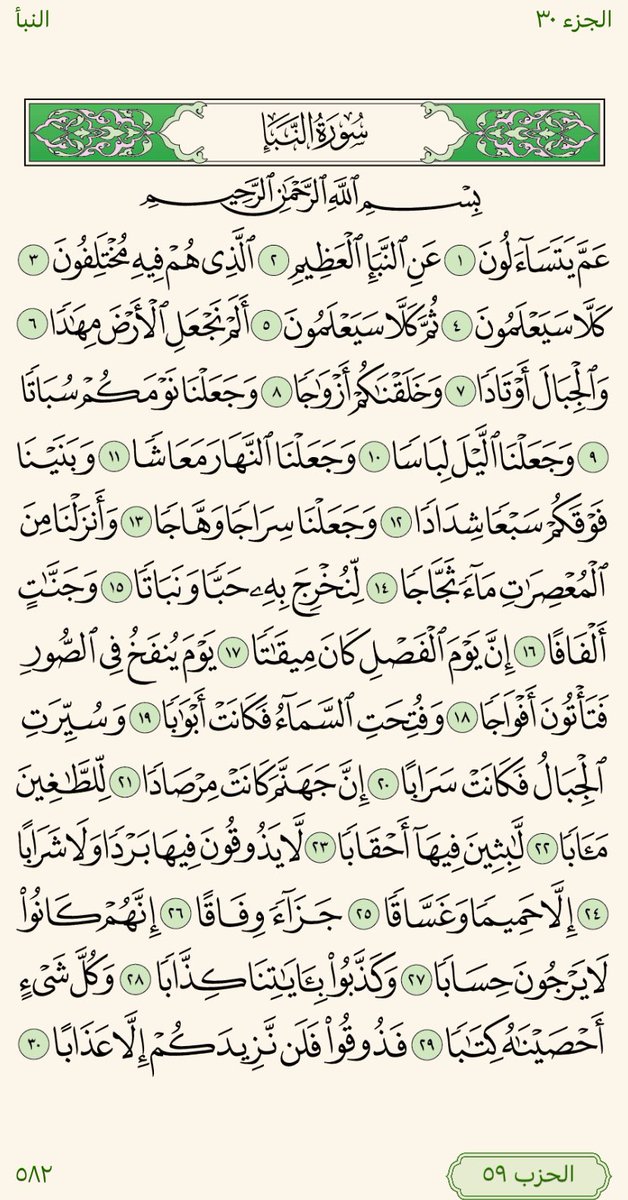 الجزء ٣٠
النبأ
سُورَةُ النَّبَإِ
بِسْمِ ٱللَّهِ ٱلرَّحْمَٰنِ ٱلرَّحِيمِ
عَمَّ يَتَسَآءَلُونَ ١ عَنِ ٱلنَّبَإِ ٱلْعَظِيمِ ٢ ٱلَّذِى هُمْ فِيهِ مُخْتَلِفُونَ ٣
كَلَّا سَيَعْلَمُونَ ٤ ثُمَّ كَلَّا سَيَعْلَمُونَ ٥ أَلَمْ نَجْعَلِ ٱلْأَرْضَ مِهَٰدًا ٦
وَٱلْجِبَالَ أَوْتَادًا ٧ وَخَلَقْنَٰكُمْ أَزْوَٰجًا ٨ وَجَعَلْنَا نَوْمَكُمْ سُبَاتًا
٩ وَجَعَلْنَا ٱلَّيْلَ لِبَاسًا ١٠ وَجَعَلْنَا ٱلنَّهَارَ مَعَاشًا ١١ وَبَنَيْنَا
فَوْقَكُمْ سَبْعًا شِدَادًا ١٢ وَجَعَلْنَا سِرَاجًا وَهَّاجًا ١٣ وَأَنزَلْنَا مِنَ
ٱلْمُعْصِرَٰتِ مَآءً ثَجَّاجًا ١٤ لِّنُخْرِجَ بِهِۦ حَبًّا وَنَبَاتًا ١٥ وَجَنَّٰتٍ
أَلْفَافًا ١٦ إِنَّ يَوْمَ ٱلْفَصْلِ كَانَ مِيقَٰتًا ١٧ يَوْمَ يُنفَخُ فِى ٱلصُّورِ
فَتَأْتُونَ أَفْوَاجًا ١٨ وَفُتِحَتِ ٱلسَّمَآءُ فَكَانَتْ أَبْوَٰبًا ١٩ وَسُيِّرَتِ
ٱلْجِبَالُ فَكَانَتْ سَرَابًا ٢٠ إِنَّ جَهَنَّمَ كَانَتْ مِرْصَادًا ٢١ لِّلطَّٰغِينَ
مَـَٔابًا ٢٢ لَّٰبِثِينَ فِيهَآ أَحْقَابًا ٢٣ لَّا يَذُوقُونَ فِيهَا بَرْدًا وَلَا شَرَابًا
٢٤ إِلَّا حَمِيمًا وَغَسَّاقًا ٢٥ جَزَآءً وِفَاقًا ٢٦ إِنَّهُمْ كَانُوا۟
لَا يَرْجُونَ حِسَابًا ٢٧ وَكَذَّبُوا۟ بِـَٔايَٰتِنَا كِذَّابًا ٢٨ وَكُلَّ شَىْءٍ
أَحْصَيْنَٰهُ كِتَٰبًا ٢٩ فَذُوقُوا۟ فَلَن نَّزِيدَكُمْ إِلَّا عَذَابًا ٣٠
الحزب ٥٩
٥٨٢